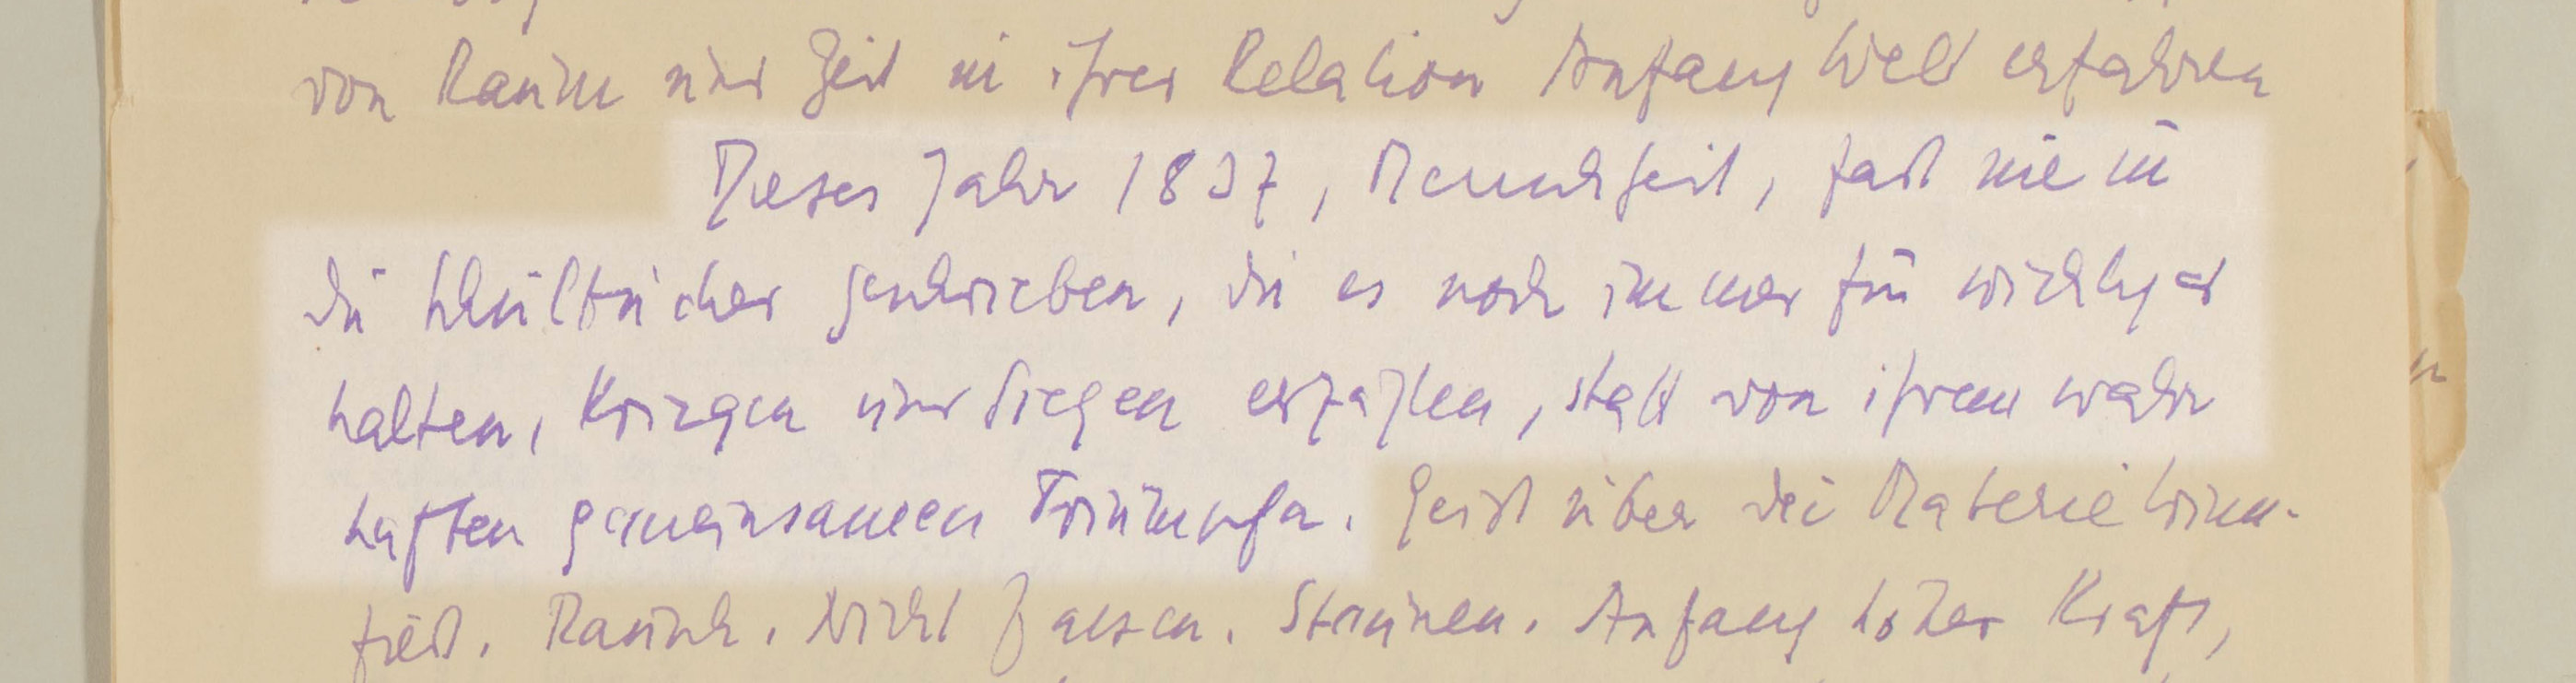 von Raum und Zeit in ihrer Relation Anfang Welt erfahren
Dieses Jahr 1837, Menschheit, fast nie in
die Schulbücher geschrieben, die es noch immer für wichtiger
halten, Kriegen und Siegen erzählen, statt von ihrem wahr
haften gemeinsamen Triumphen. Geist über die Materie trium-
fiert. Rausch. Nicht Staunen. Anfang hoher Kraft,